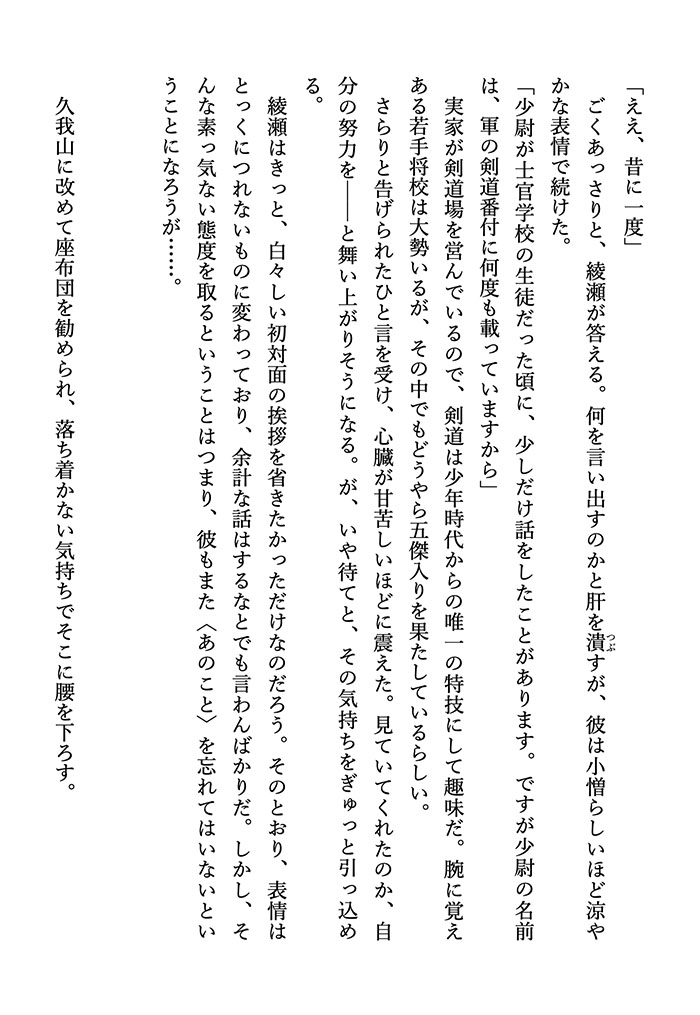 「ええ、昔に一度」
ごくあっさりと、綾瀬が答える。何を言い出すのかと肝を潰すが、彼は小憎らしいほど涼や
つぶ
かな表情で続けた。
「少尉が士官学校の生徒だった頃に、少しだけ話をしたことがあります。ですが少尉の名前
は、軍の剣道番付に何度も載っていますから」
実家が剣道場を営んでいるので、剣道は少年時代からの唯一の特技にして趣味だ。腕に覚え
ある若手将校は大勢いるが、その中でもどうやら五傑入りを果たしているらしい。
さらりと告げられたひと言を受け、心臓が甘苦しいほどに震えた。見ていてくれたのか、自
分の努力を――と舞い上がりそうになる。が、いや待てと、その気持ちをぎゅっと引っ込め
る。
綾瀬はきっと、白々しい初対面の挨拶を省きたかっただけなのだろう。そのとおり、表情は
とっくにつれないものに変わっており、余計な話はするなとでも言わんばかりだ。しかし、そ
んな素っ気ない態度を取るということはつまり、彼もまた〈あのこと〉を忘れてはいないとい
うことになろうが……。
久我山に改めて座布団を勧められ、落ち着かない気持ちでそこに腰を下ろす。